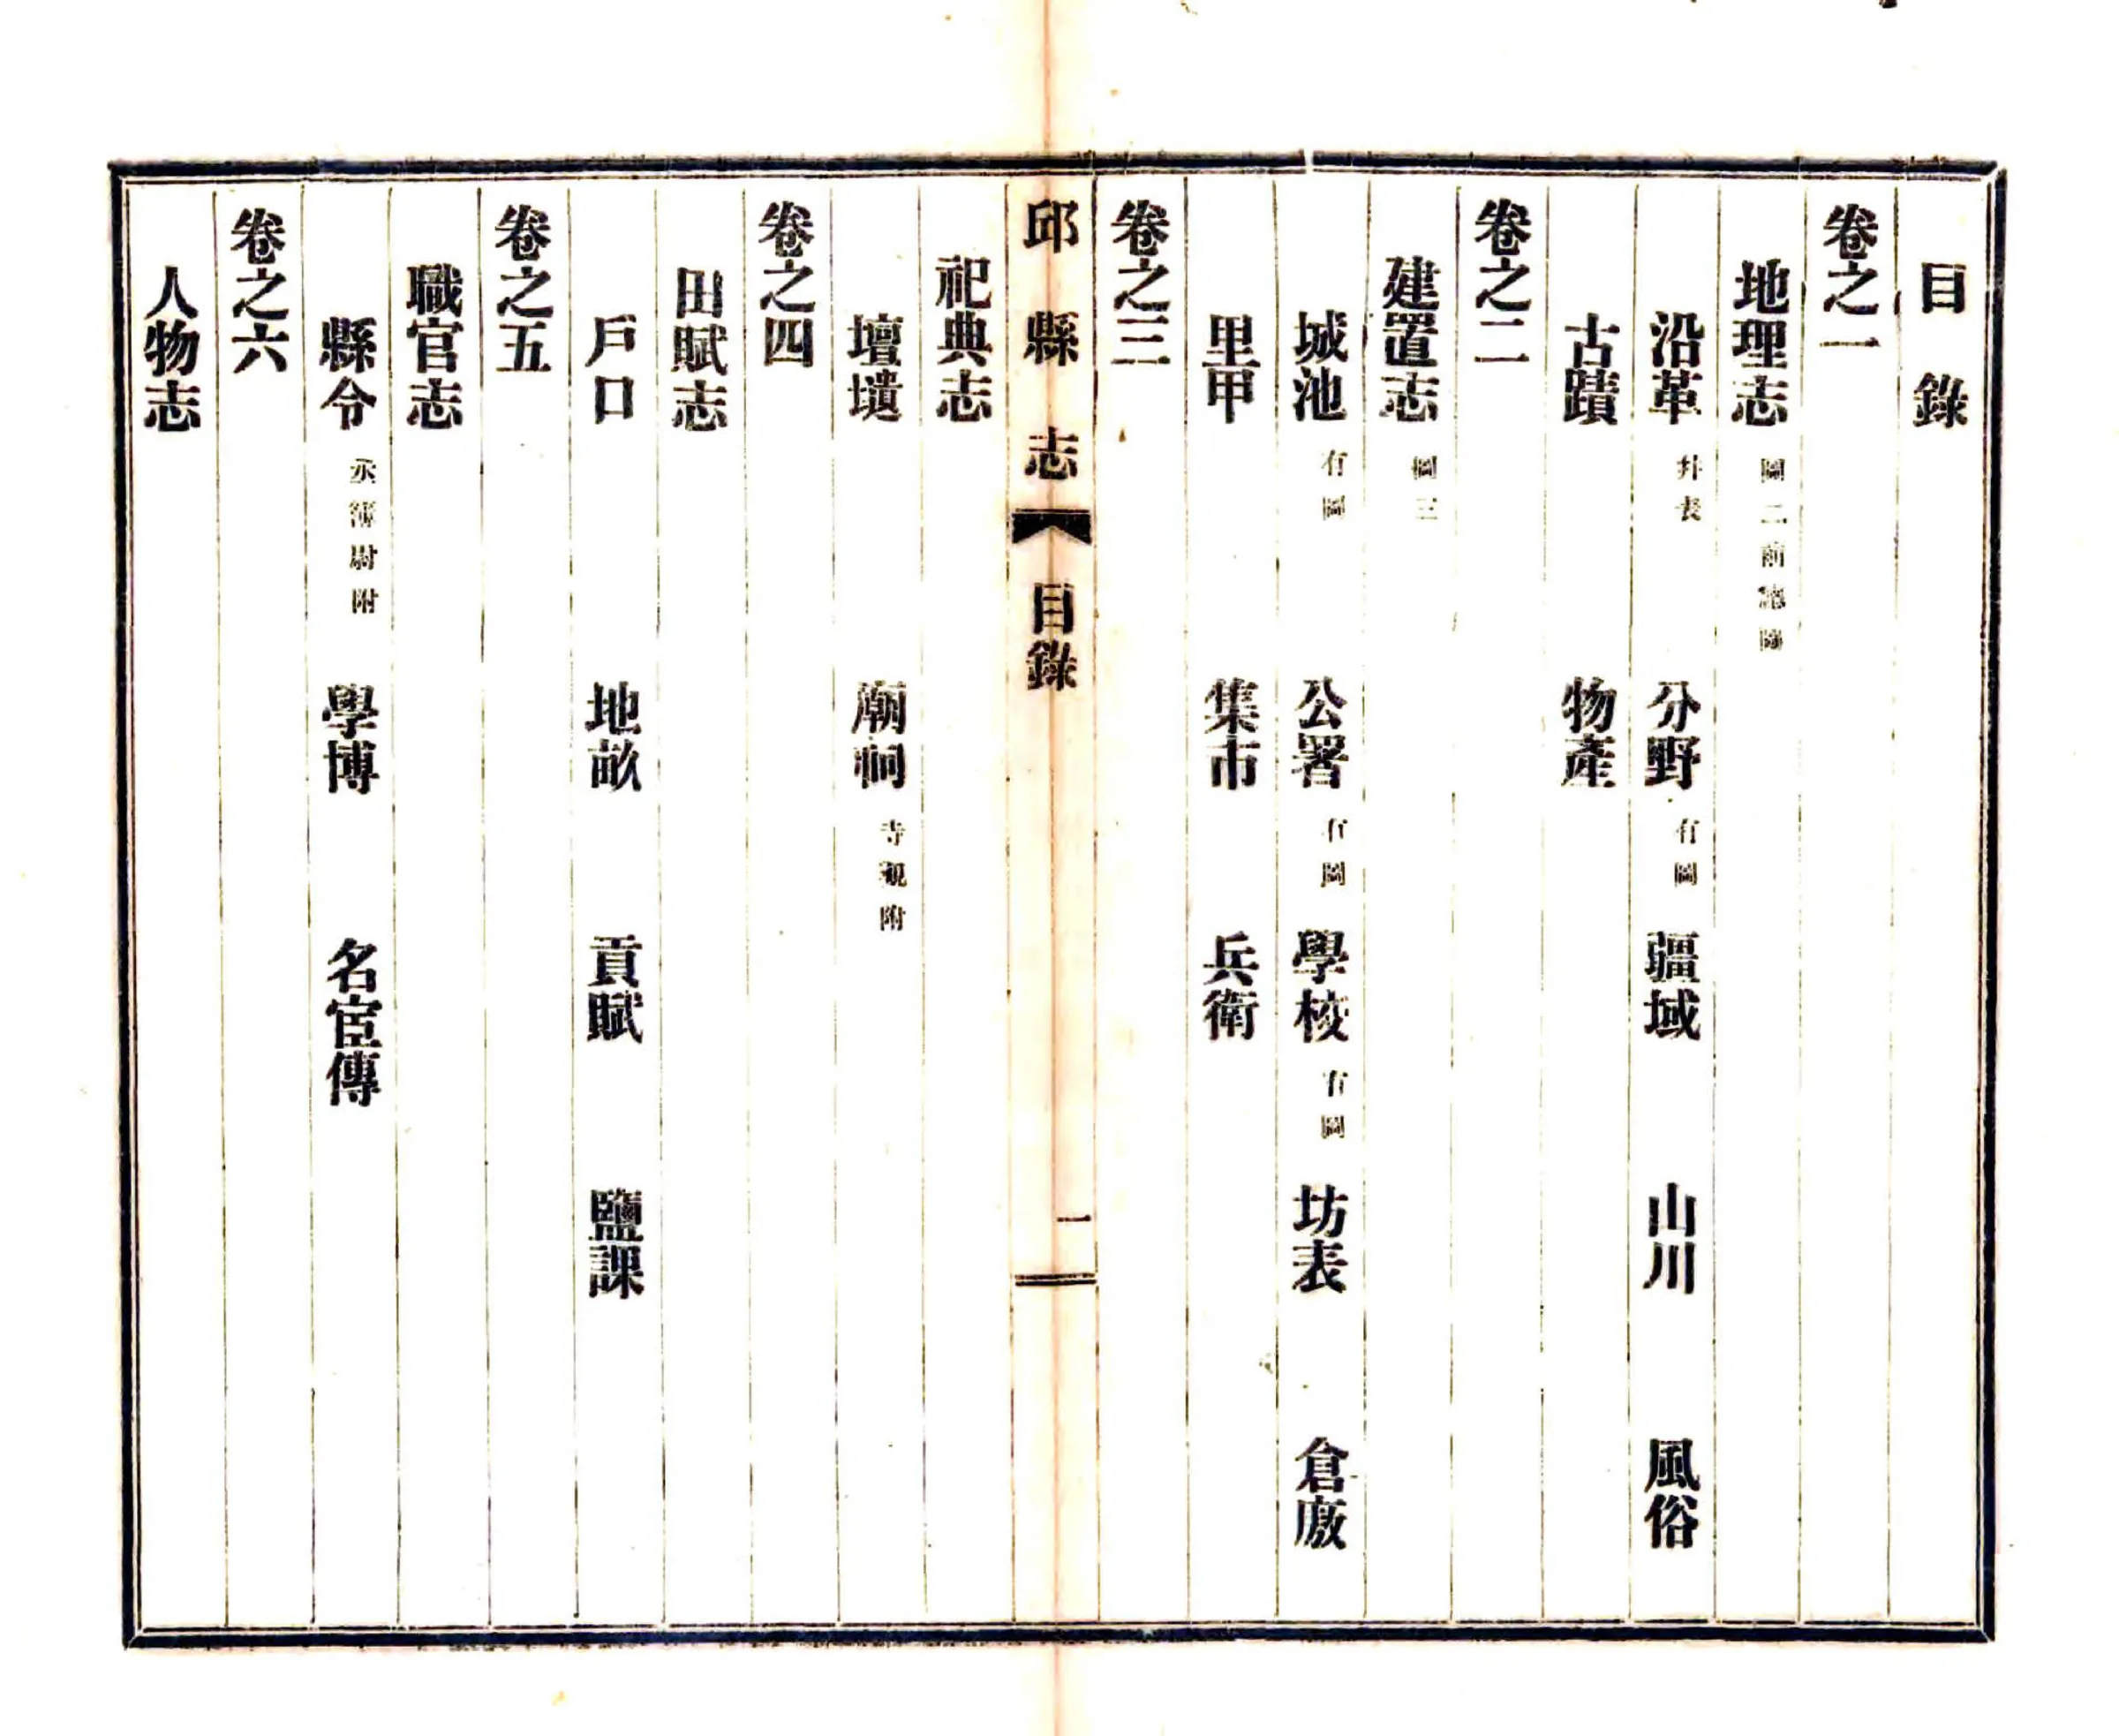 目錄
卷之一
地理志 圖二前總圖
沿革 并表 分野 有圖 疆域 山川 風俗
古蹟 物產
卷之二
建置志 圖三
城池 有圖 公署 有圖 學校 有圖 坊表 倉廒
里甲 集市 兵衛
卷之三
邱縣志 目錄 一
祀典志
壇壝 廟祠 寺觀附
卷之四
田賦志
戶口 地畝 貢賦 鹽課
卷之五
職官志
縣令 丞簿尉附 學博 名宦傳
卷之六
人物志